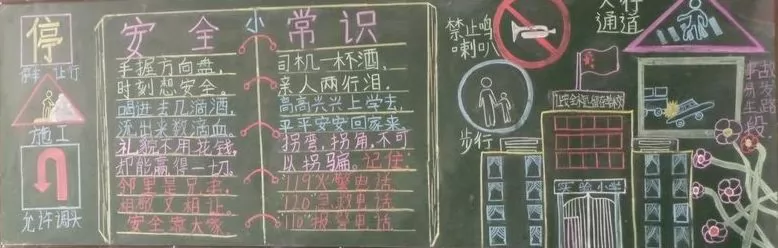 停
停车让行
施工
允许调头
安全小常识
手握方向盘,
时刻想安全。
喝进去几滴酒,
流出来数滴血。
礼貌不用花钱,
却能赢得一切。
邻里是兄弟,
相敬又相让。
安全靠大家
司机一杯酒,
亲人两行泪.
高高兴兴上学去,
平平安安回家来.
拐弯、拐角,不可
以拐骗。记住
"119"火警电话
"120"急救电话
"110"报警电话
禁止鸣
喇叭
步行
人行
通道
事故易发路段
让安全永驻校园
实验小学